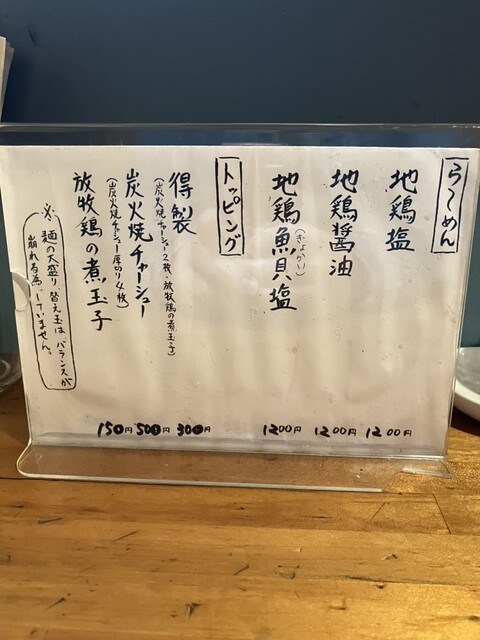 らーめん
地鶏塩 1200円
地鶏醤油 1200円
地鶏魚貝塩 1200円
(ぎょかい)
トッピング
得製 300円
(炭火焼チャーシュー2枚、放牧鶏の煮玉子)
炭火焼チャーシュー 500円
(炭火焼チャーシュー厚切り4枚)
放牧鶏の煮玉子 150円
※麺の大盛り、替え玉は、バランスが
崩れる為、していません。